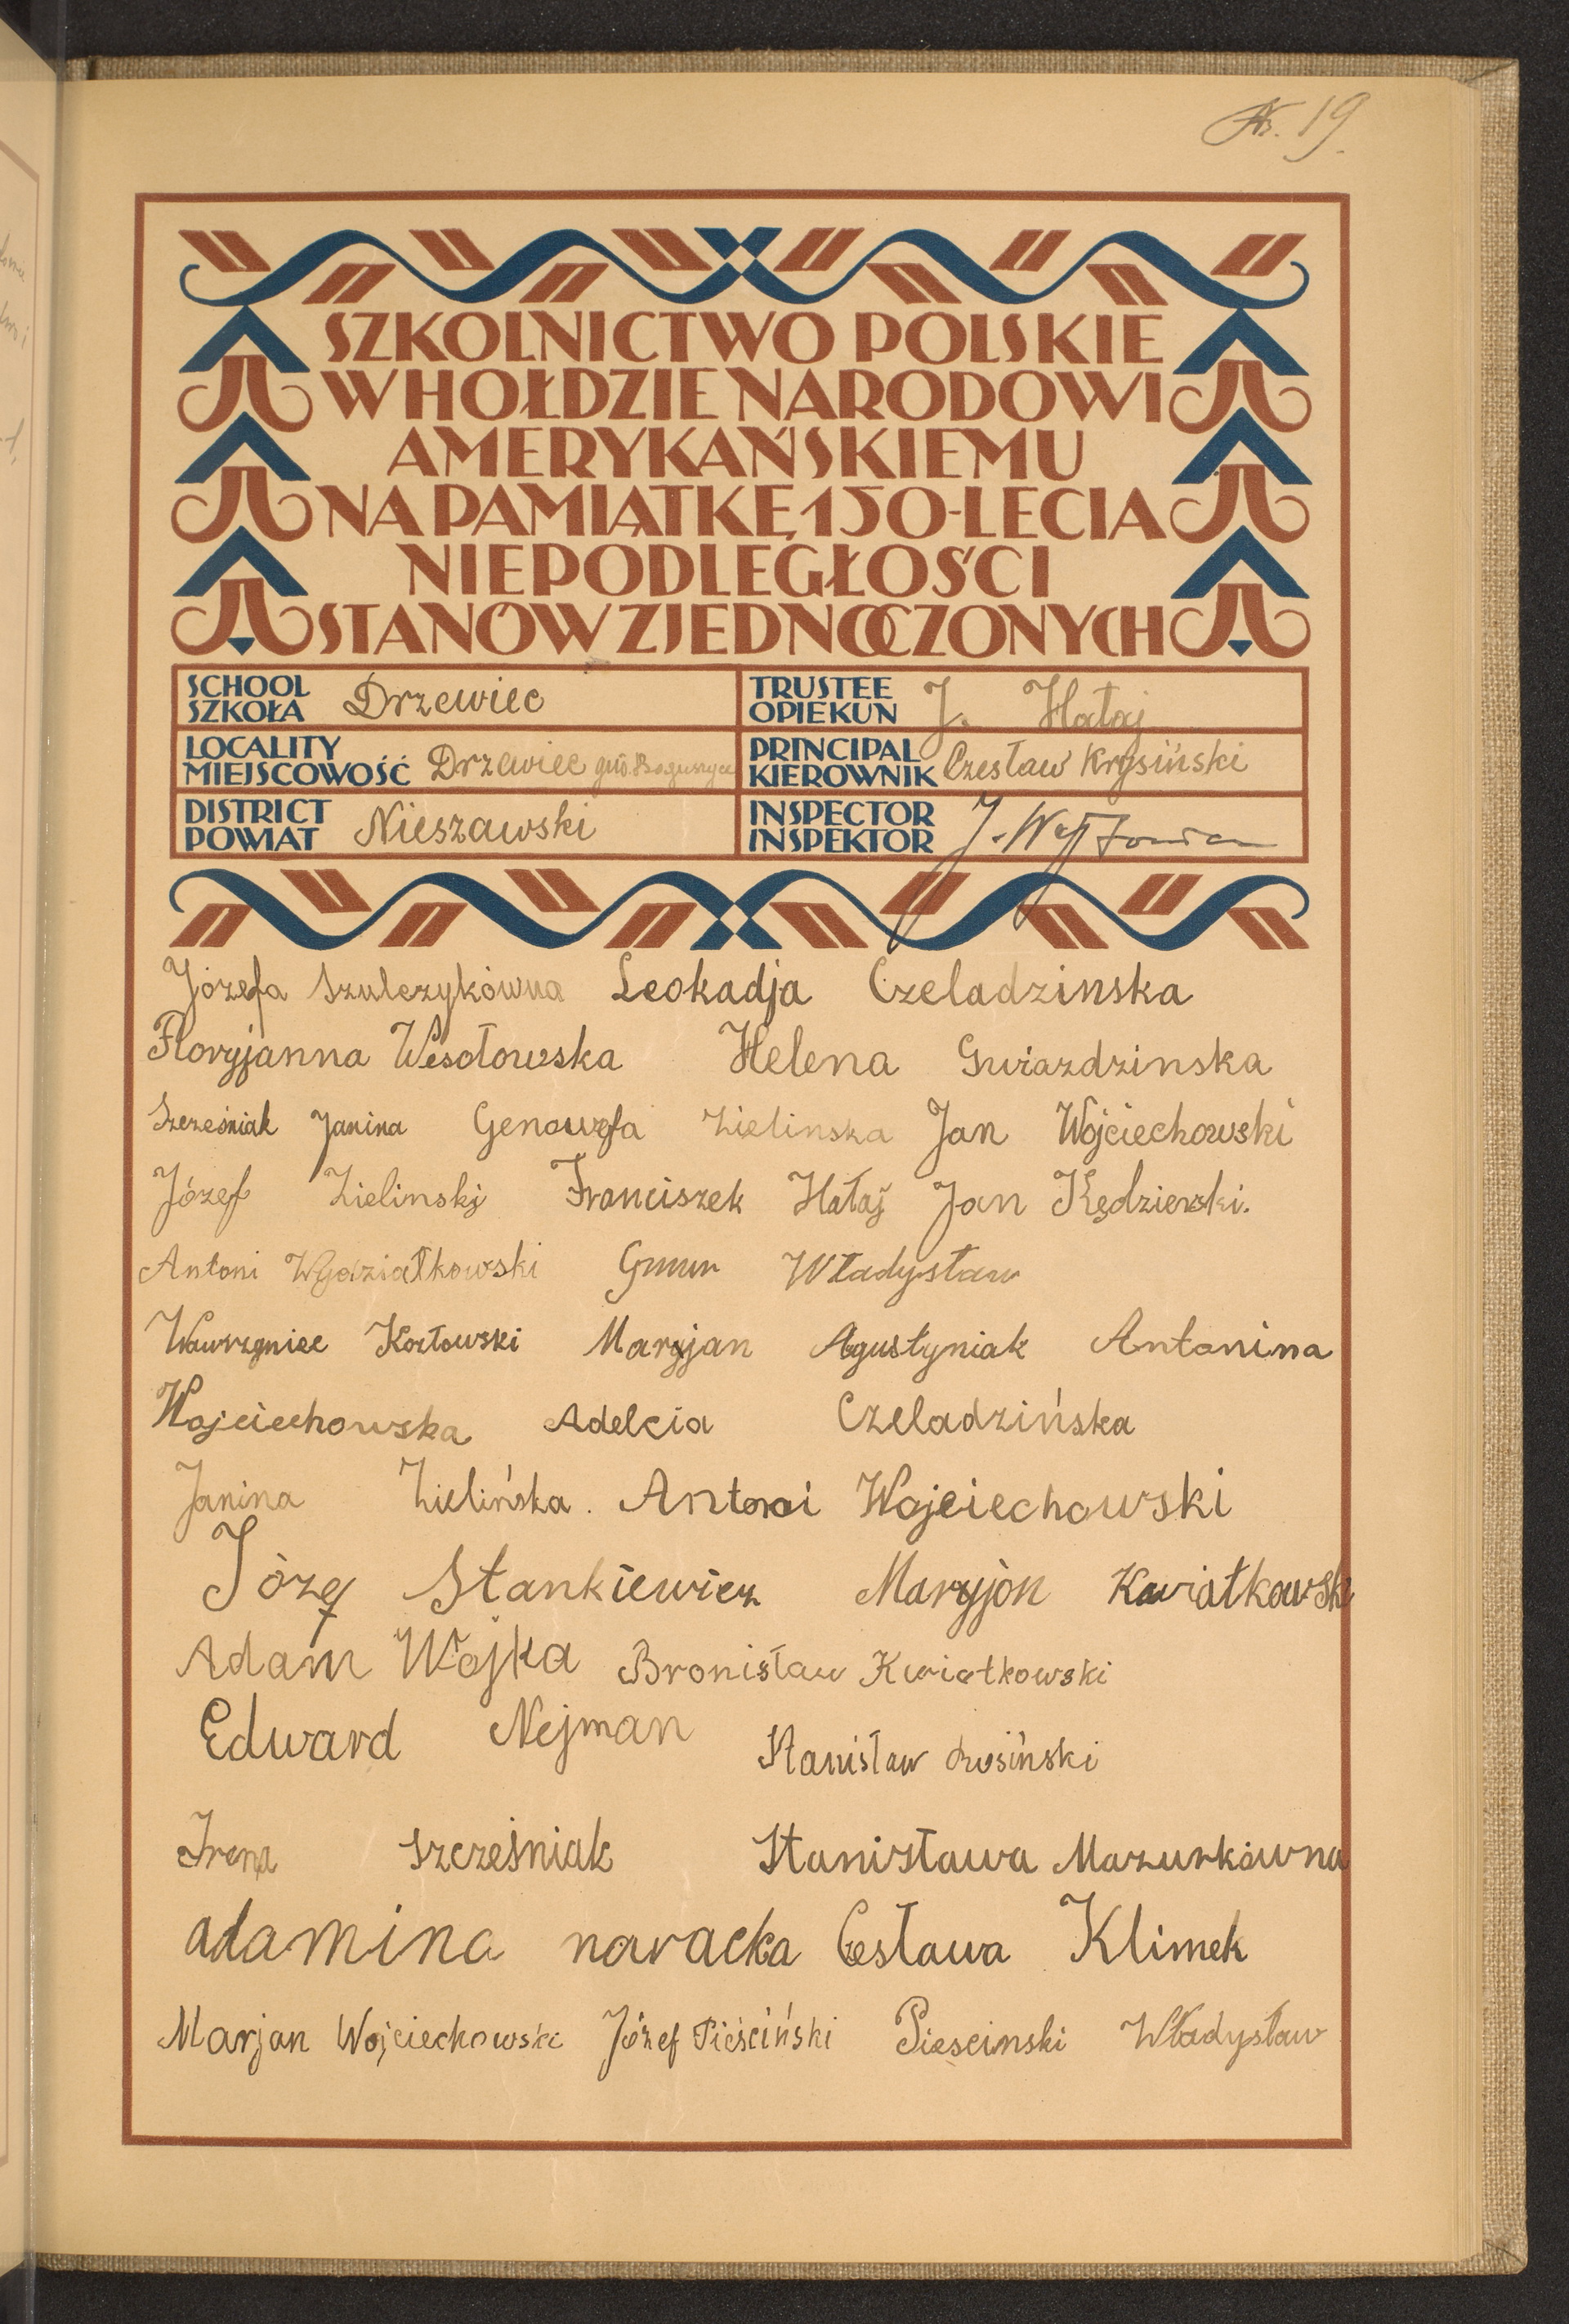 Nr. 19.
SZKOLNICTWO POLSKIE
W HOŁDZIE NARODOWI
AMERYKAŃSKIEMU
NA PAMIĄTKĘ 150-LECIA
NIEPODLEGŁOŚCI
STANÓW ZJEDNOCZONYCH
SCHOOL SZKOŁA Drzewiec
TRUSTEE OPIEKUN J. Hałaj
LOCALITY MIEJSCOWOŚĆ Drzewiec gm.
PRINCIPAL KIEROWNIK Czesław Krysiński
DISTRICT POWIAT Nieszawski
INSPECTOR INSPEKTOR J.
Józefa Szulczykówna Leokadja Czeladzinska
Floryjanna Wesołowska Helena Gwiazdzinska
Szcześniak Janina Genowefa Zielinska Jan Wojciechowski
Józef Zielinski Franciszek Hałaj Jan Kędzierski.
Antoni Wydziałkowski Gmur Władysław
Wawrzyniec Kozłowski Maryjan Agustyniak Antonina
Wojciechowska Adelcia Czeladzińska
Janina Zielińska. Antoni Wojciechowski
Józef Stankiewicz Maryjon Kwiatkowski
Adam Wojka Bronisław Kwiatkowski
Edward Nejman Stanisław Łusiński
Irena Szcześniak Stanisława Mazurkówna
adamina navacka Cesława Klimek
Marjan Wojciechowski Józef Pieściński Piescinski Władysław